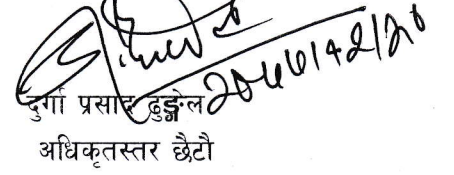 दुर्गा प्रसाद ढुङ्गेल
अधिकृतस्तर छैटौ